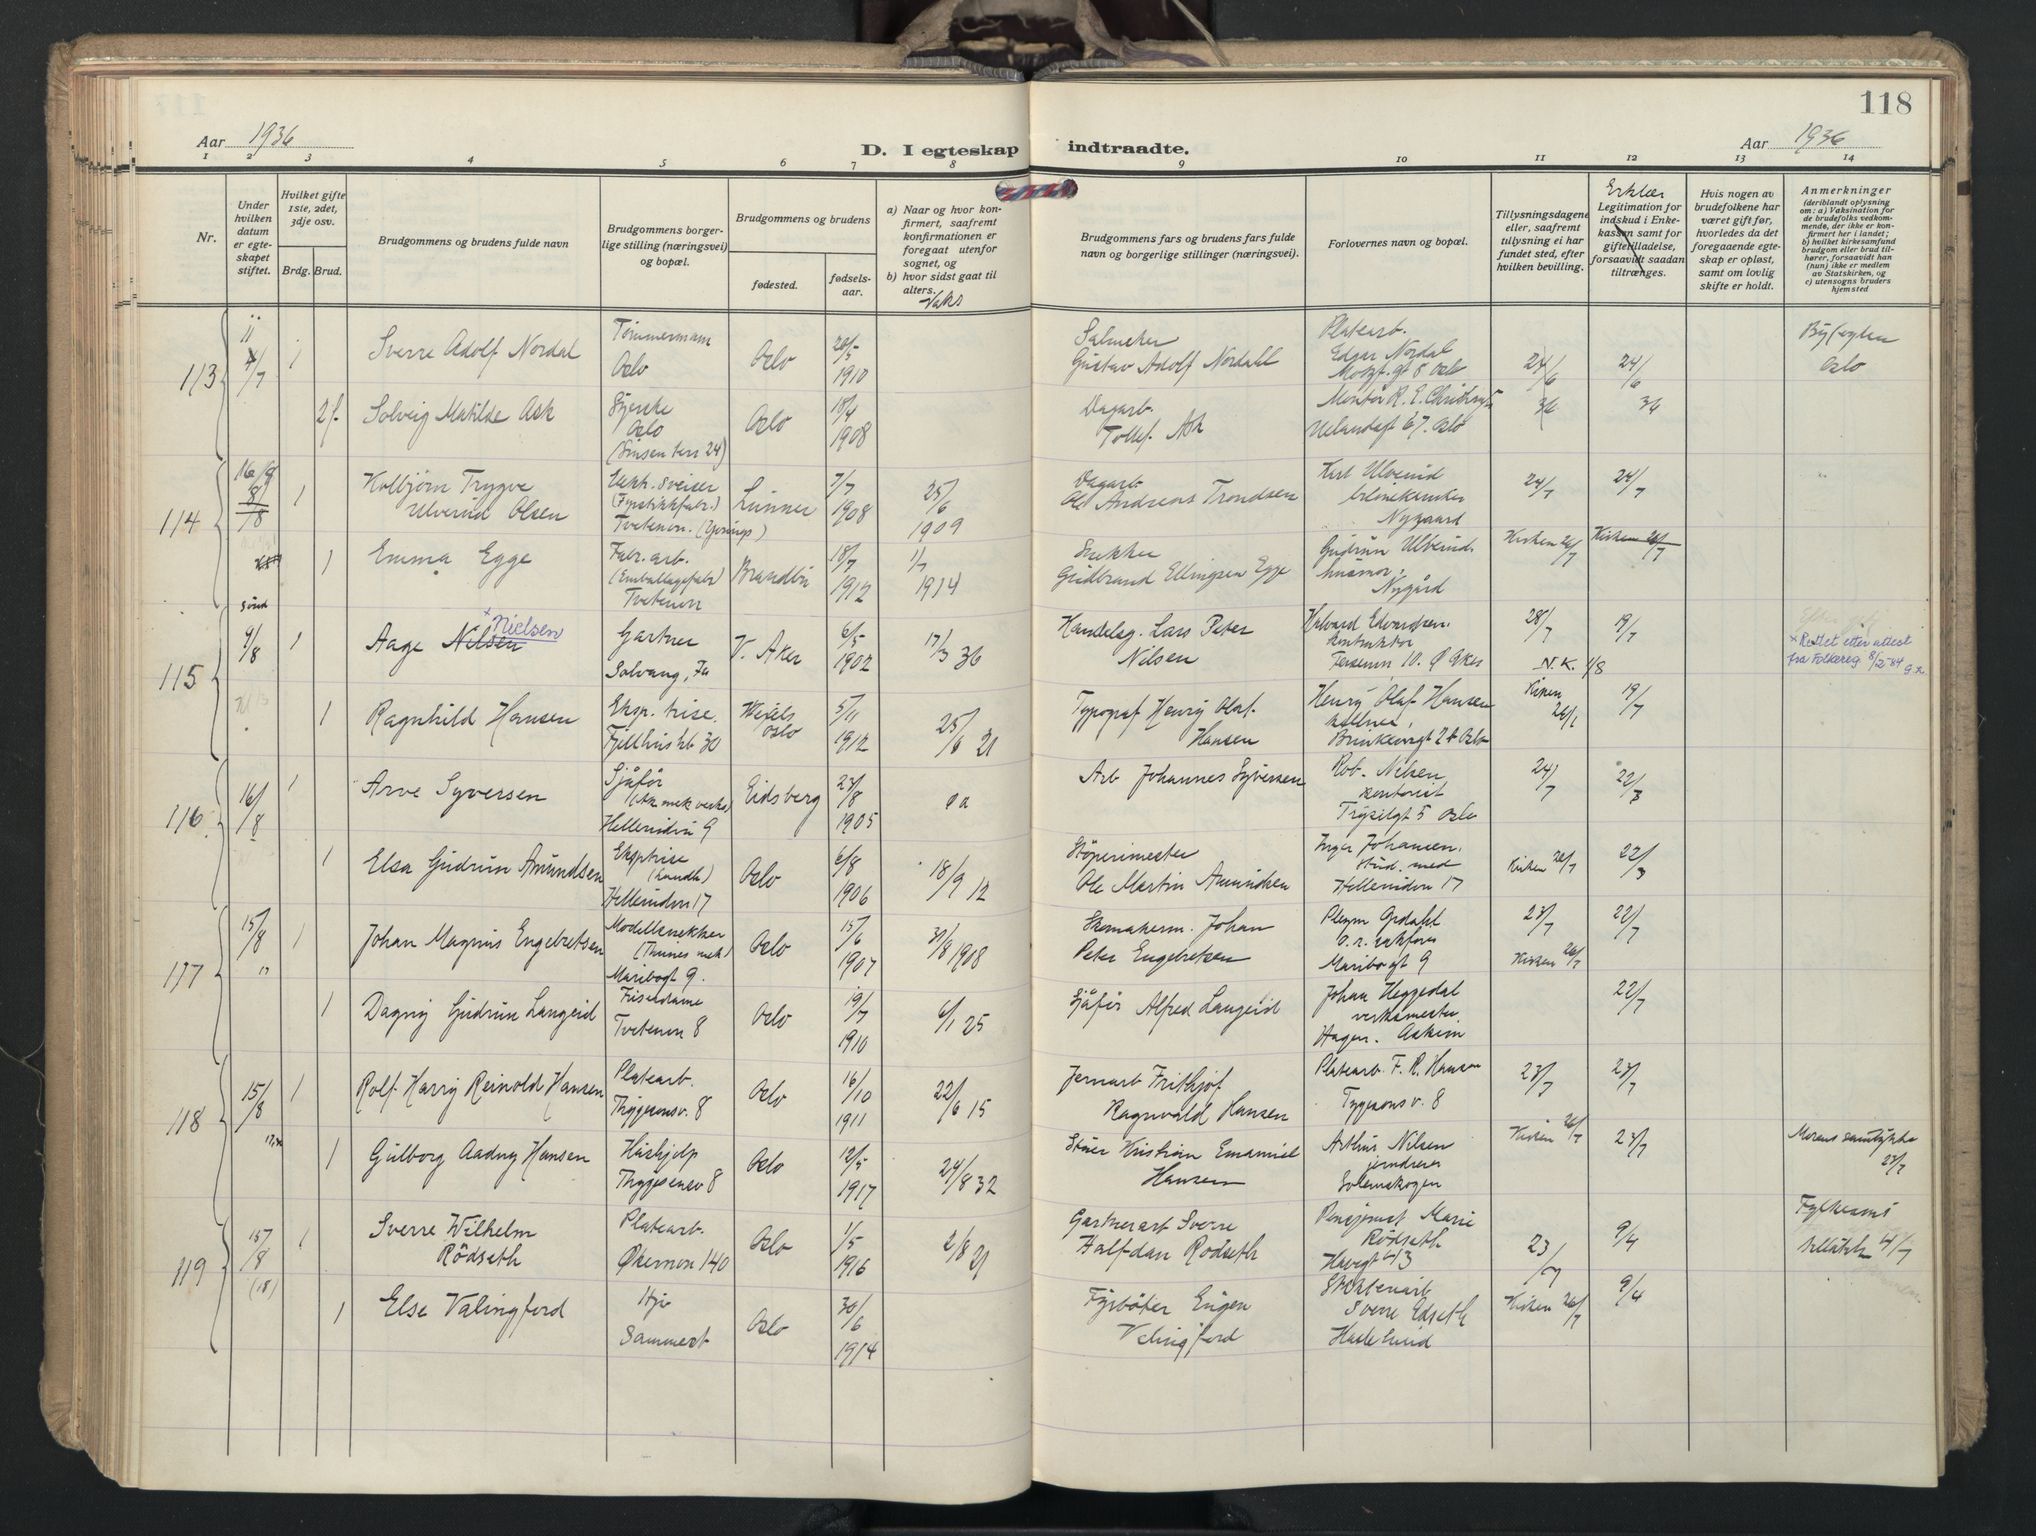 118
Aar 1936
D. I egteskap indtraadte.
Aar 1936
1 2 3 4 5 6 7 8 9 10 11 12 13 14
Nr.
Under hvilken datum er egteskapet stiftet.
Hvilket gifte 1ste, 2det, 3dje osv.
Brdg. Brud.
Brudgommens og brudens fulde navn
Brudgommens borgerlige stilling (næringsvei) og bopæl.
Brudgommens og brudens
fødested.
fødselsaar.
a) Naar og hvor konfirmert, saafremt konfirmationen er foregaat utenfor sognet, og
b) hvor sidst gaat til alters.
Vaks
Brudgommens fars og brudens fars fulde navn og borgerlige stillinger (næringsvei).
Forlovernes navn og bopæl.
Tillysningsdagene eller, saafremt tillysning ei har fundet sted, efter hvilken bevilling.
Erklær
Legitimation for indskud i Enkekassen samt for giftetilladelse, forsaavidt saadan tiltrænges.
Hvis nogen av brudefolkene har været gift før, hvorledes da det foregaaende egteskap er opløst, samt om lovlig skifte er holdt.
Anmerkninger
(deriblandt oplysning om: a) Vaksination for de brudefolks vedkommende, der ikke er konfirmert her i landet; b) hvilket kirkesamfund brudgom eller brud tilhører, forsaavidt han (hun) ikke er medlem av Statskirken, og c) utensogns bruders hjemsted
113
11/7
1
Sverre Adolf Nordal
Tømmermann
Oslo
Oslo
20/5 1910
Salmaker
Gustav Adolf Nordahl
Platearb.
Edgar Nordal
24/6 36
24/6 36
Byfogden
Oslo
2 f.
Solveig Matilde Ask
Syerske
Oslo
(Sinsen terr 24)
Oslo
18/4 1908
Dagarb.
Tollef Ask
Uelandsgt 67. Oslo
114
8/8
1
Kolbjørn Trygve
Ulverud Olsen
Elektr. sveiser
Lunner
7/7 1908
25/6 1909
Dagarb
Ol. Andreas Trondsen
Karl Ulverud
Nygaard
24/7
24/7
1
Emma Egge
Fabr. arb.
(Emballagefabr)
Tvetenvn
Brandbu
18/7 1912
1/7 1914
Snekker
Gudbrand Ellingsen Egge
Gudrun Ulverud.
husmor.
Nygård
Kirken 26/7
Kirken 26/7
115
sønd
9/8
1
Aage Nilsen
× Nielsen
Gartner
Solvang,
V. Aker
6/5 1902
17/3 36
Handelsg. Lars Peter
Nilsen
Halvard Edvardsen.
28/7
N. K. 1/8
19/7
× Rettet etter attest
fra Folkereg 8/5-84
1
Ragnhild Hansen
Eksp. trise.
Fjellhusvb 30
Oslo
5/11 1912
25/6 21
Typograf Henry Olaf
Hansen
Henry Olaf Hansen
Kirken 26/
19/7
116
16/8
1
Arve Syversen
Sjåfør
Hellerudvn 9
Eidsberg
23/8 1905
Arb Johannes Syversen
Rob. Nilsen,
kontorist
Trysilgt 5 Oslo
24/7
22/3
1
Elsa Gudrun Amundsen
Eksptrise
Hellerudvn 17
Oslo
6/8 1906
18/9 12
Støperimester
Ole Martin Amundsen
Inger Johansen.
stud. med
Hellerudvn 17
Kirken 26/7
22/3
117
15/8
1
Johan Magnus Engebretsen
Modellsnekker
(Thunes mek)
Maribogt 9.
Oslo
15/6 1907
30/8 1908
Skomakerm. Johan
Peter Engebretsen
Maribogt 9
23/7
Kirken 26/7
22/7
1
Dagny Gudrun Langeid
Friserdame
Tvetenvn 8
Oslo
19/7 1910
6/1 25
Sjåfør Alfred Langeid
Johan Heggedal
verksmester
Hagen. Askim
22/7
118
15/8
1
Rolf Harry Reinold Hansen
Platearb.
Thygesonsv. 8
Oslo
16/10 1911
22/6 15
Jernarb Frithjof
Ragnvald Hansen
Platearb. F. R. Hansen
Tygesons v. 8
23/7
23/7
1
Gulborg Aadny Hansen
Hushjelp
Thygesensv 8
Oslo
12/5 1917
24/8 32
Kristian Emanuel
Hansen
Arthur Nilsen
jerndreier
Solemskogen
Kirken 26/7
23/7
Morens samtykke
23/7
119
15/8
(18)
1
Sverre Wilhelm
Rödseth
Platearb.
Økernvn 140
Oslo
1/5 1916
2/8 21
Gartnerarb Sverre
Halfdan Rodseth
Marie
Rødseth
Havegt 43
23/7
9/4
Fylkesms
tillatelse 4/7
1
Else Valingford
Hjv
Sammest
Oslo
30/6 1914
Fyrbøter Eugen
Valingford
Sverre Edseth
Kirken 26/7
9/4